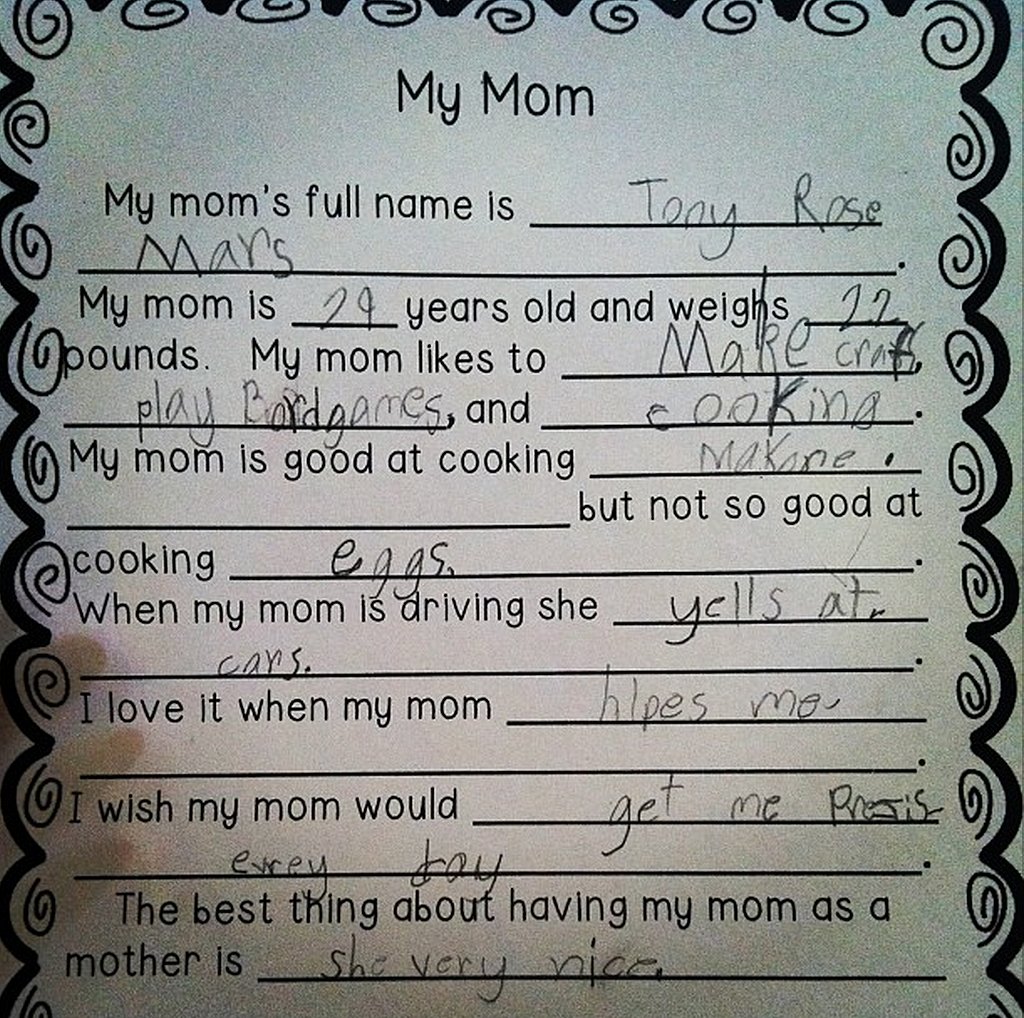 My Mom
My mom's full name is Tony Rose
Mars.
My mom is 29 years old and weighs 22
pounds. My mom likes to Make craft,
play Bordgames, and cooking.
My mom is good at cooking Makine.
but not so good at
cooking eggs.
When my mom is driving she yells at
cars.
I love it when my mom hlpes me
.
I wish my mom would get me Presis
evrey day.
The best thing about having my mom as a
mother is she very nice.